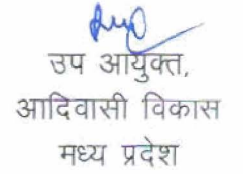 उप आयुक्त,
आदिवासी विकास
मध्य प्रदेश